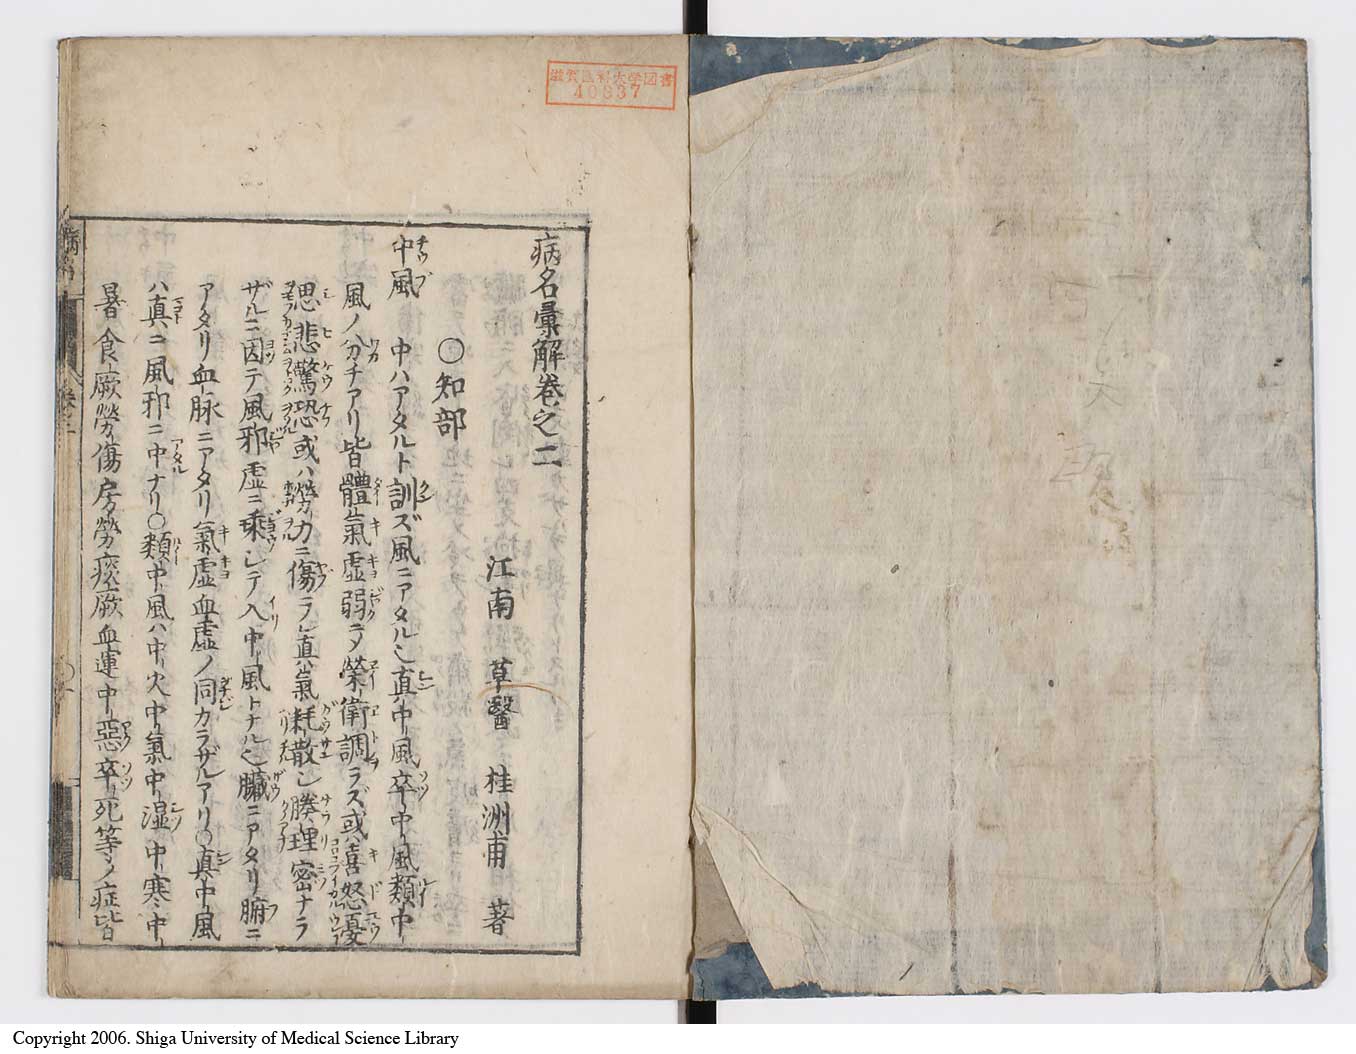 滋賀医科大学図書
40837
病名彙解卷之二
江南 草醫 桂洲甫 著
○知部
中風 中ハアタルト訓ズ風ニアタル也真中風卒中風類中
風ノ分チアリ皆體氣虛弱ニメ榮衛調ラズ或ハ喜怒憂
思悲驚恐或ハ勞力ニ傷ラレ真氣耗散シ腠理密ナラ
ザルニ因テ風邪虛ニ乘シテ入中風トナル也臟ニアタリ腑ニ
アタリ血脉ニアタリ氣虛血虛ノ同カラザルアリ○真中風
ハ真ニ風邪ニ中ナリ○類中風ハ中火中氣中湿中寒中
暑食厥勞傷房勞痰厥血運中惡卒死等ノ症皆
Copyright 2006. Shiga University of Medical Science Library